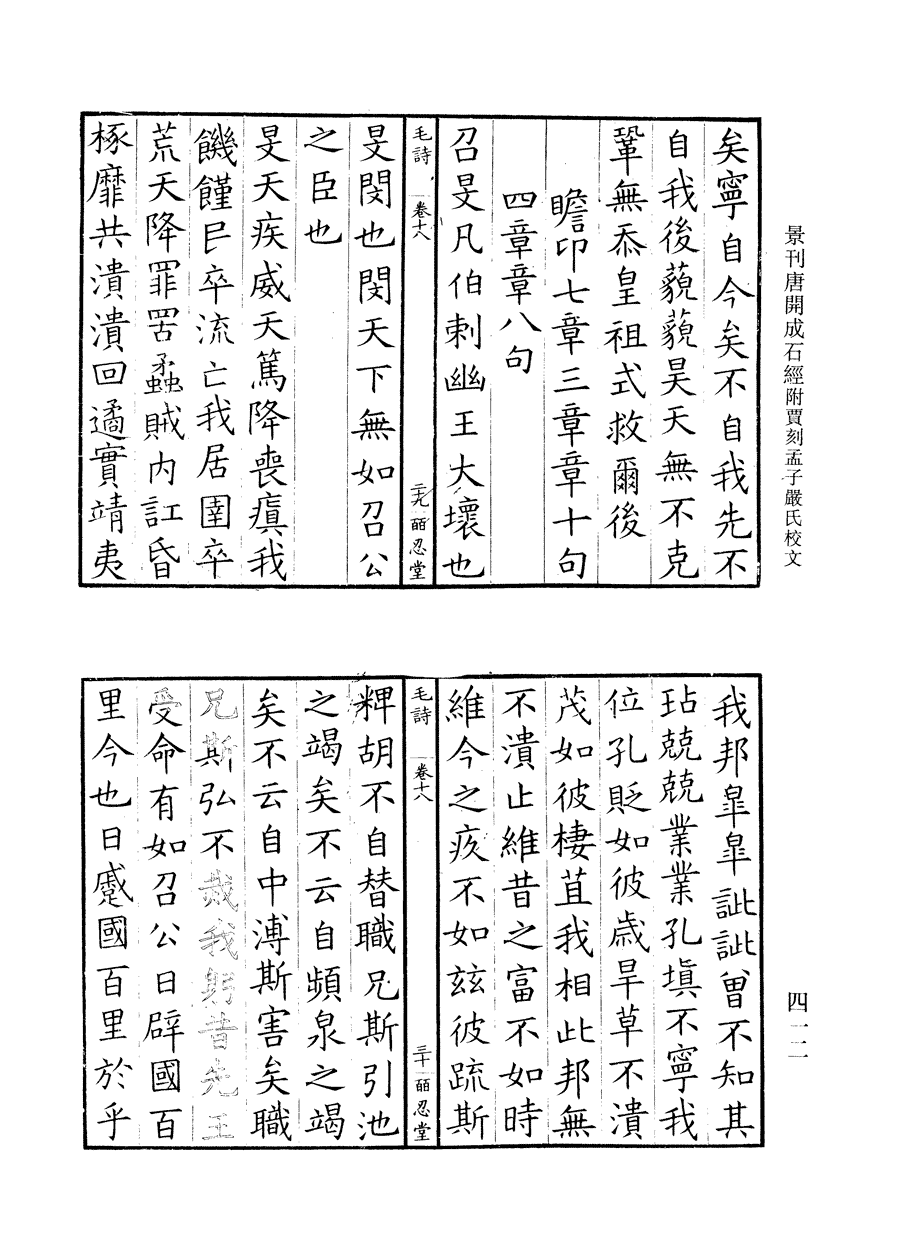 景刊唐開成石經附賈刻孟子嚴氏校文
矣寧自今矣不自我先不
自我後藐藐昊天無不克
鞏無忝皇祖式救爾後
瞻卬七章三章章十句
四章章八句
召旻凡伯刺幽王大壞也
毛詩 卷十八 二十九 皕忍堂
旻閔也閔天下無如召公
之臣也
旻天疾威天篤降喪瘨我
饑饉㠯卒流亡我居圉卒
荒天降罪罟蟊賊內訌昏
椓靡共潰潰回遹實靖夷
四一二
我邦臯臯訿訿曾不知其
玷兢兢業業孔填不寧我
位孔貶如彼歲旱草不潰
茂如彼棲苴我相此邦無
不潰止維昔之富不如時
維今之疚不如茲彼疏斯
毛詩 卷十八 三十 皕忍堂
粺胡不自替職兄斯引池
之竭矣不云自頻泉之竭
矣不云自中溥斯害矣職
兄斯弘不烖我躬昔先王
受命有如召公日辟國百
里今也日蹙國百里於乎